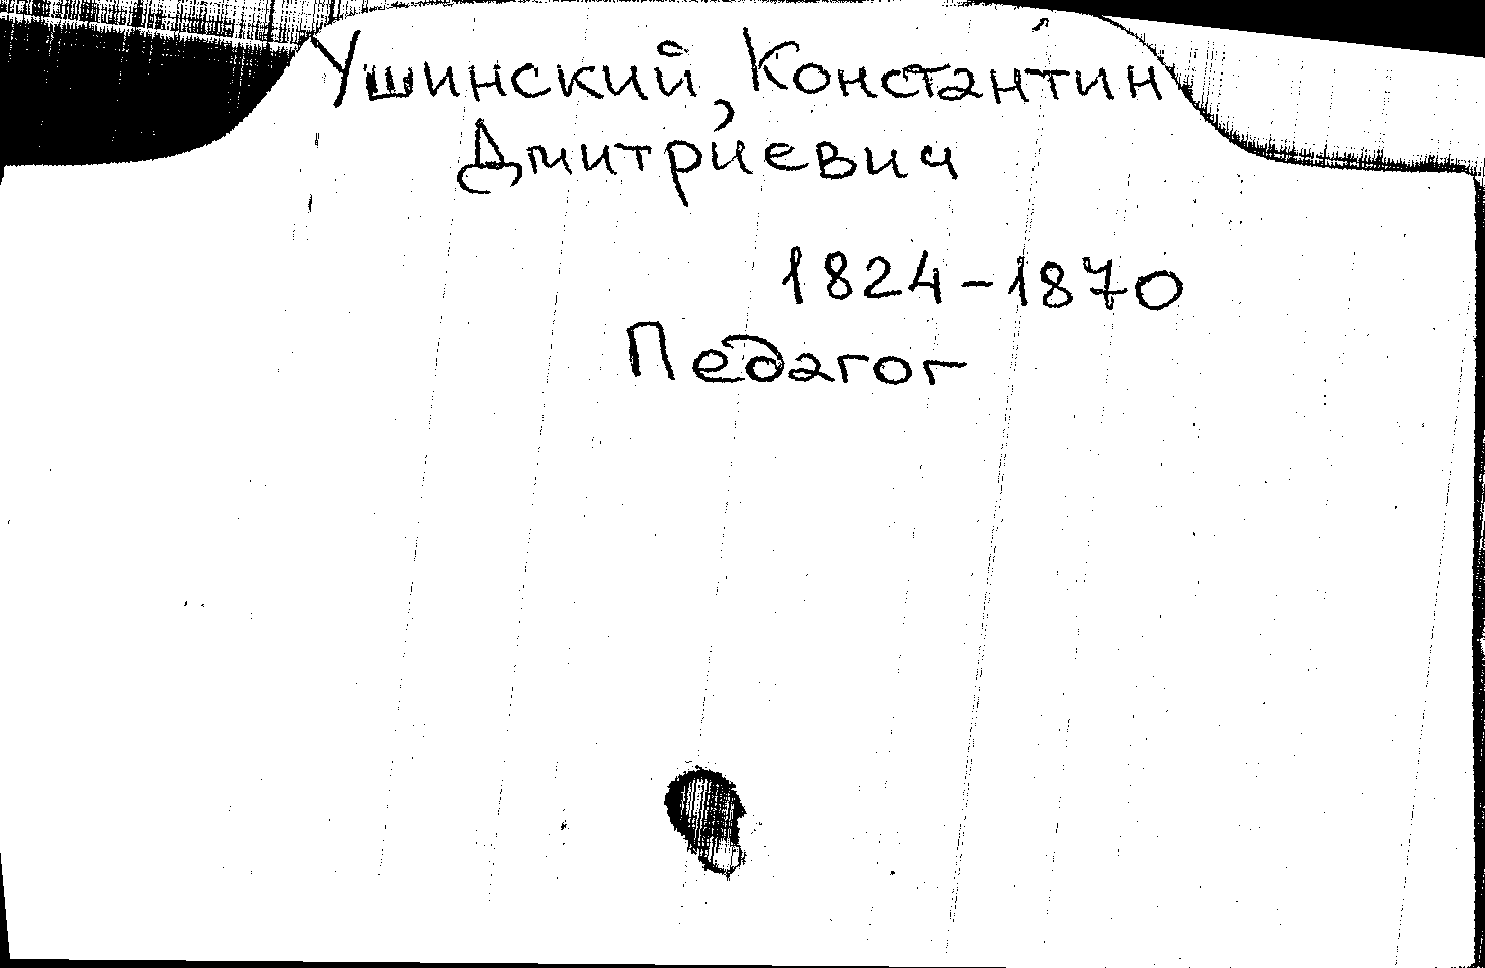 Ушинский, Константин
Дмитриевич
1824-1870
Педагог